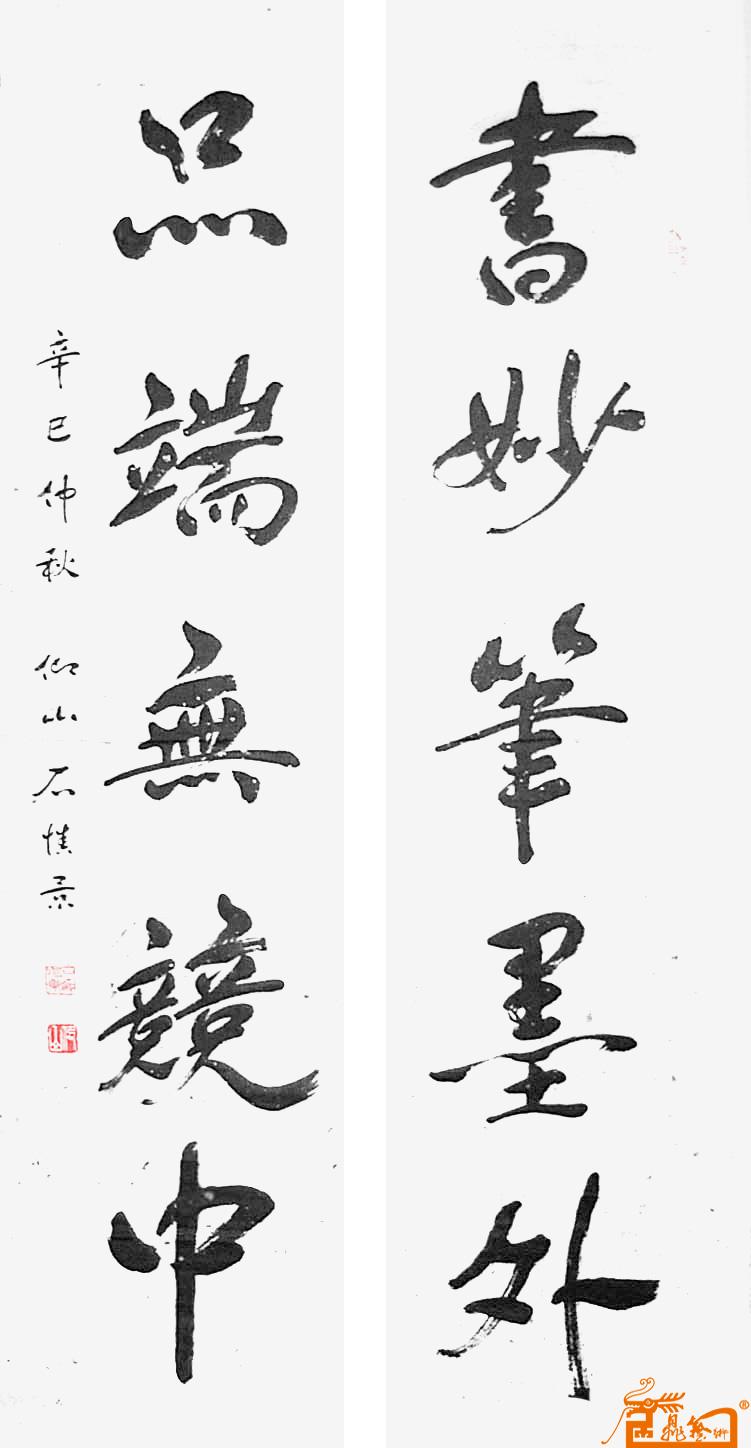 書妙筆墨外
品端無競中
辛巳仲秋 仰山石慎景